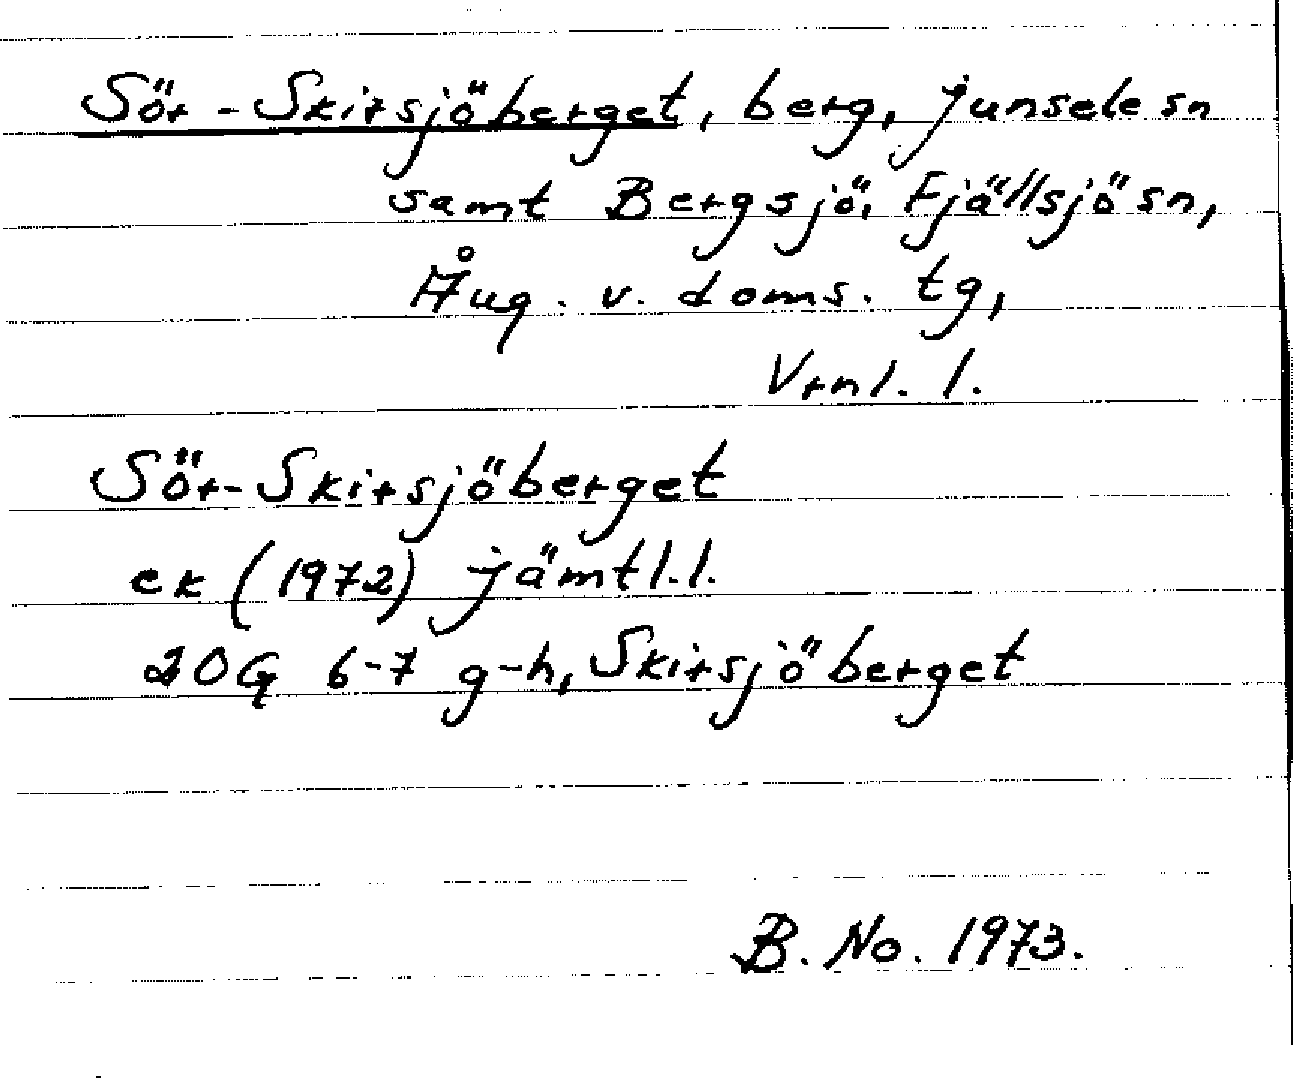 Sör-Skirsjöberget, berg, Junsele sn
samt Bergsjö, Fjällsjö sn,
Ång. v. doms. tg,
Vrnl. l.
Sör-Skirsjöberget
ek (1972) Jämtl.l.
20G 6-7 g-h, Skirsjöberget
B. No. 1973.